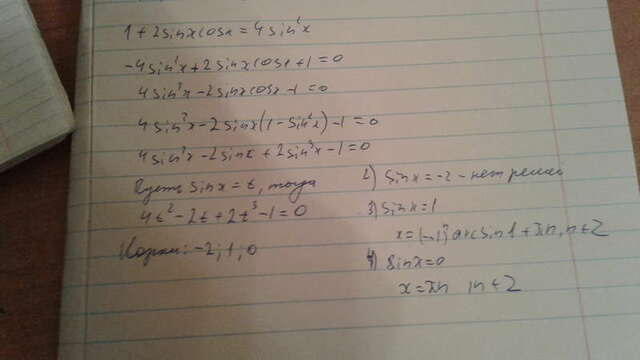 1 + 2 sinx cosx = 4 sin²x
-4 sin²x + 2 sinx cosx + 1 = 0
4 sin²x - 2 sinx cosx - 1 = 0
4 sin²x - 2 sinx (1 - sin²x) - 1 = 0
4 sin²x - 2 sinx + 2 sin³x - 1 = 0
Пусть sinx = t, тогда
4t² - 2t + 2t³ - 1 = 0
Корни: -2; 1; 0
2) sinx = -2 - нет решений
3) sinx = 1
x = (-1)ⁿ arcsin1 + πn, n ∈ Z
4) sinx = 0
x = πn, n ∈ Z